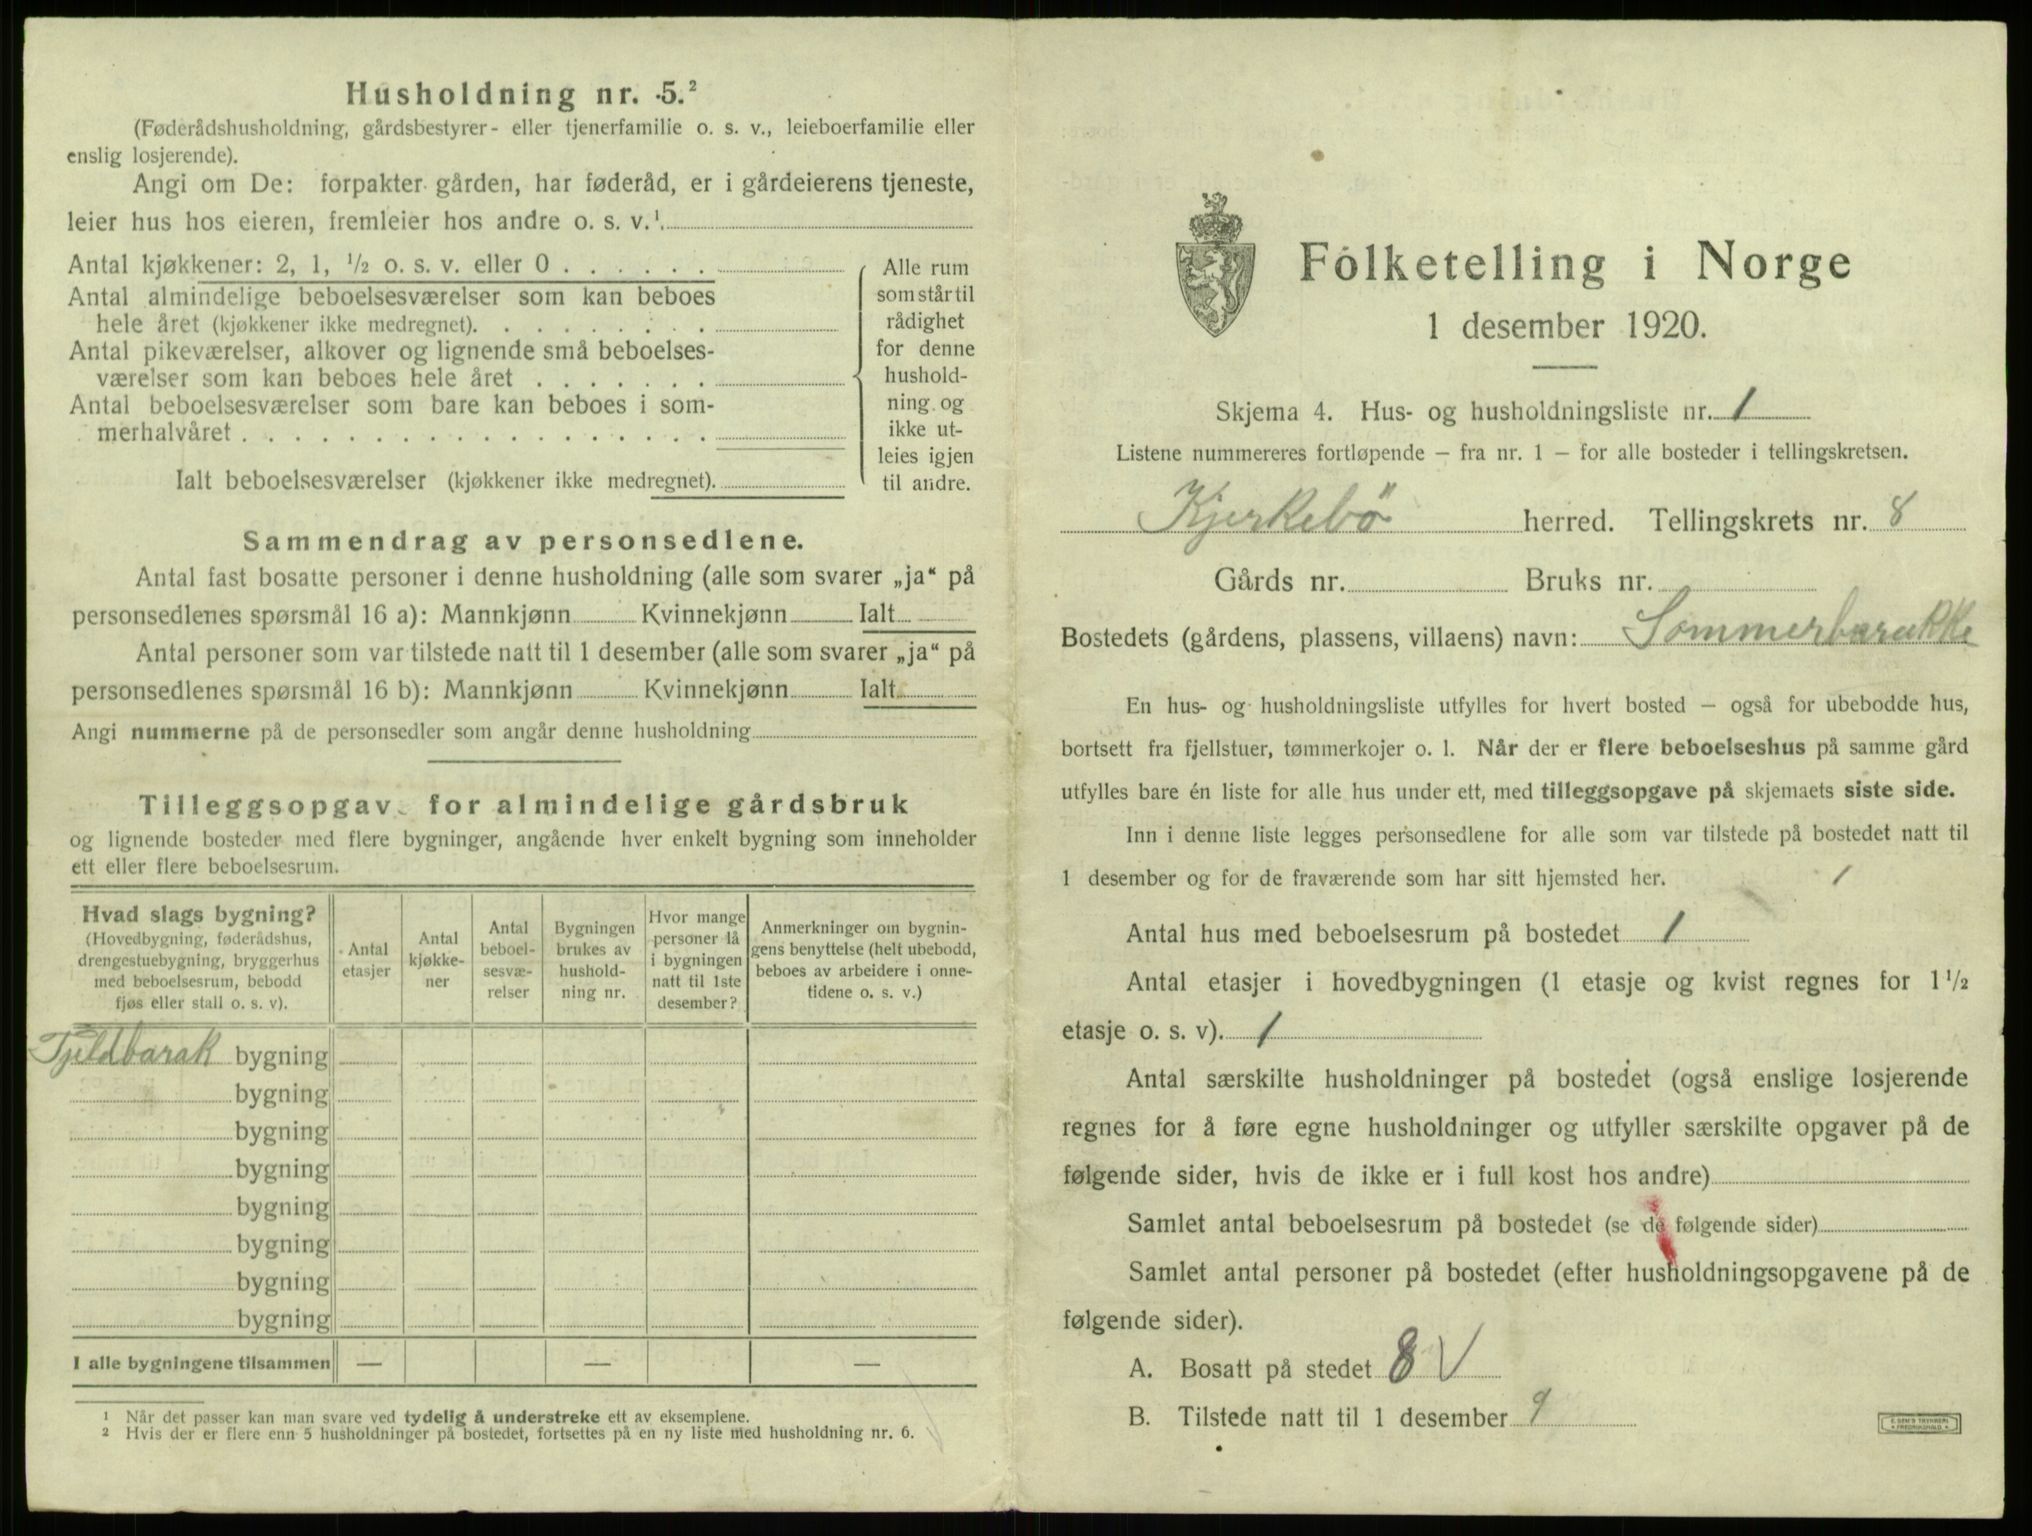 Husholdning nr. 5.²
(Føderådshusholdning, gårdsbestyrer- eller tjenerfamilie o. s. v., leieboerfamilie eller
enslig losjerende).
Angi om De: forpakter gården, har føderåd, er i gårdeierens tjeneste,
leier hus hos eieren, fremleier hos andre o. s. v.¹
Antal kjøkkener: 2, 1, ½ o. s. v. eller 0
Antal almindelige beboelsesværelser som kan beboes
hele året (kjøkkener ikke medregnet).
Antal pikeværelser, alkover og lignende små beboelses-
værelser som kan beboes hele året
Antal beboelsesværelser som bare kan beboes i som-
merhalvåret
Ialt beboelsesværelser (kjøkkener ikke medregnet).
Alle rum
som står til
rådighet
for denne
hushold-
ning og
ikke ut-
leies igjen
til andre.
Sammendrag av personsedlene.
Antal fast bosatte personer i denne husholdning (alle som svarer „ja“ på
personsedlenes spørsmål 16 a): Mannkjønn Kvinnekjønn Ialt
Antal personer som var tilstede natt til 1 desember (alle som svarer „ja“ på
personsedlenes spørsmål 16 b): Mannkjønn Kvinnekjønn Ialt
Angi nummerne på de personsedler som angår denne husholdning
Tilleggsopgav for almindelige gårdsbruk
og lignende bosteder med flere bygninger, angående hver enkelt bygning som inneholder
ett eller flere beboelsesrum.
Hvad slags bygning?
(Hovedbygning, føderådshus,
drengestuebygning, bryggerhus
med beboelsesrum, bebodd
fjøs eller stall o. s. v).
Antal
etasjer
Antal
kjøkke-
ner
Antal
beboel-
sesvæ-
relser
Bygningen
brukes av
hushold-
ning nr.
Hvor mange
personer lå
i bygningen
natt til 1ste
desember?
Anmerkninger om bygnin-
gens benyttelse (helt ubebodd,
beboes av arbeidere i onne-
tidene o. s. v.)
Tjeldbarak bygning
bygning
bygning
bygning
bygning
bygning
bygning
bygning
I alle bygningene tilsammen — — —
¹ Når det passer kan man svare ved tydelig å understreke ett av eksemplene.
² Hvis der er flere enn 5 husholdninger på bostedet, fortsettes på en ny liste med husholdning nr. 6.
Folketelling i Norge
1 desember 1920.
Skjema 4. Hus- og husholdningsliste nr. 1
Listene nummereres fortløpende – fra nr. 1 – for alle bosteder i tellingskretsen.
Kjerkebö herred. Tellingskrets nr. 8
Gårds nr. Bruks nr.
Bostedets (gårdens, plassens, villaens) navn: Sommerbarakke
En hus- og husholdningsliste utfylles for hvert bosted – også for ubebodde hus,
bortsett fra fjellstuer, tømmerkojer o. l. Når der er flere beboelseshus på samme gård
utfylles bare én liste for alle hus under ett, med tilleggsopgave på skjemaets siste side.
Inn i denne liste legges personsedlene for alle som var tilstede på bostedet natt til
1 desember og for de fraværende som har sitt hjemsted her. 1
Antal hus med beboelsesrum på bostedet 1
Antal etasjer i hovedbygningen (1 etasje og kvist regnes for 1½
etasje o. s. v). 1
Antal særskilte husholdninger på bostedet (også enslige losjerende
regnes for å føre egne husholdninger og utfyller særskilte opgaver på de
følgende sider, hvis de ikke er i full kost hos andre)
Samlet antal beboelsesrum på bostedet (se de følgende sider)
Samlet antal personer på bostedet (efter husholdningsopgavene på de
følgende sider).
A. Bosatt på stedet 8 V
B. Tilstede natt til 1 desember 9